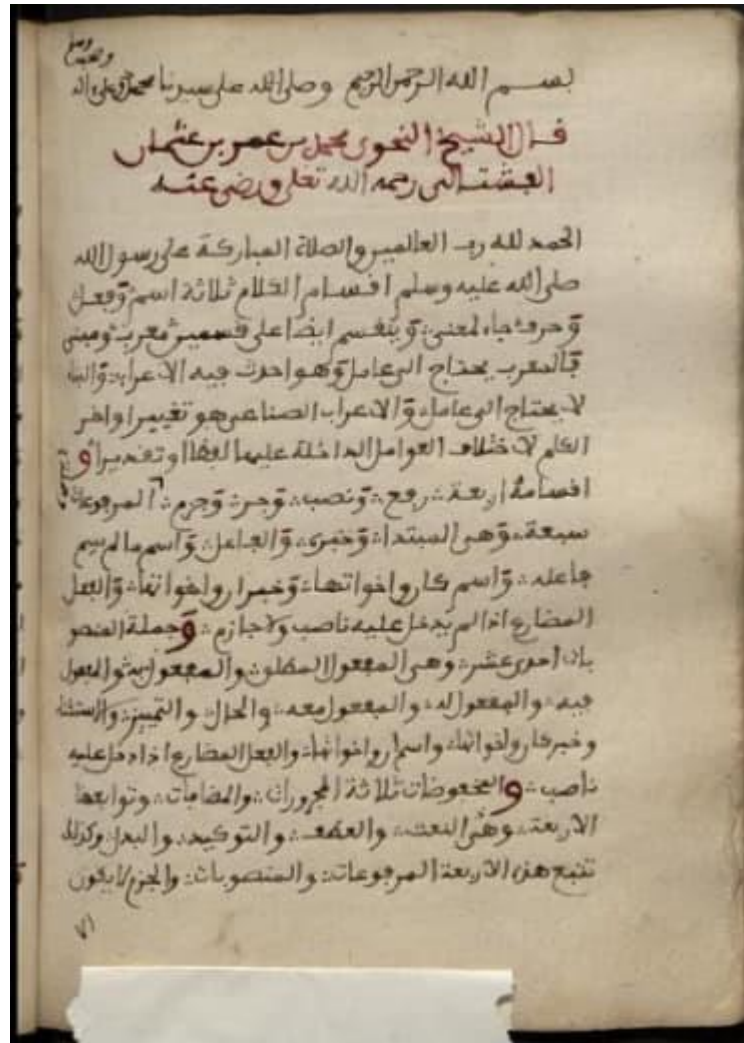 وصحبه وسلم
بسم الله الرحمن الرحيم وصلى الله على سيدنا محمد وعلى اله
قال الشيخ النحوي محمد بن عمر بن عثمان
الفشتالي رحمه الله تعلى ورضي عنه
الحمد لله رب العالمين والصلاة المباركة على رسول الله
صلى الله عليه وسلم اقسام الكلام ثلاثة اسم وفعل
وحرف جاء لمعنى وينقسم ايضا على قسمين معرب ومبني
فالمعرب يحتاج الى عامل وهو احدث فيه الاعراب والبناء
لا يحتاج الى عامل والاعراب الصناعي هو تغيير اواخر
الكلم لاختلاف العوامل الداخلة عليها لفظا او تقديرا و
اقسامه اربعة رفع ونصب وجر وجزم المرفوعات
سبعة وهي المبتدا وخبره والفاعل واسم ما لم يسم
فاعله واسم كان واخواتها وخبر ان واخواتها والفعل
المضارع اذا لم يدخل عليه ناصب ولا جازم وجملة المنصو
بات احدى عشر وهي المفعول المطلق والمفعول به والمفعول
فيه والمفعول له والمفعول معه والحال والتمييز والاستثناء
وخبر كان واخواتها واسم ان واخواتها والفعل المضارع اذا دخل عليه
ناصب والمخفوضات ثلاثة المجرورات والمضافات وتوابعها
الاربعة وهي النعت والعطف والتوكيد والبدل وكذلك
تتبع هذه الاربعة المرفوعات والمنصوبات والجزم لا يكون